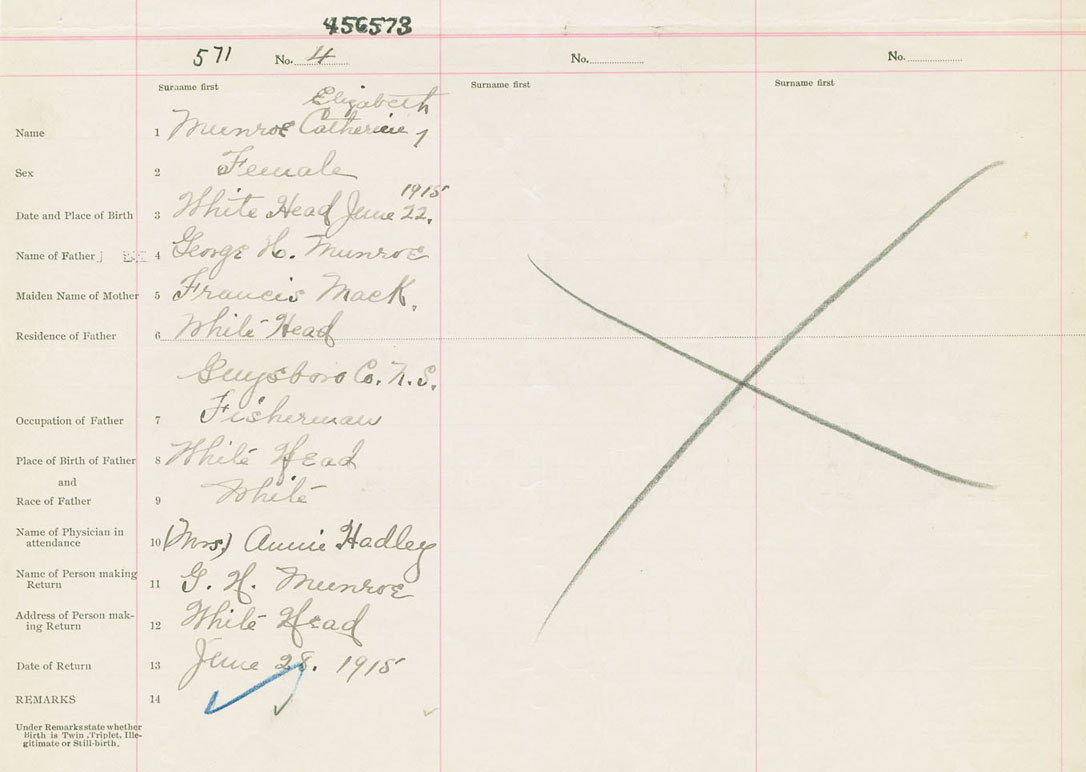 456573
571 No. 4 No. No.
Surname first Surname first Surname first
Elizabeth
Name 1 Munroe Catherine
Sex 2 Female
1915
Date and Place of Birth 3 White Head June 22.
Name of Father 4 George H. Munroe
Maiden Name of Mother 5 Francis Mack.
Residence of Father 6 White Head
Guysboro Co. N.S.
Occupation of Father 7 Fisherman
Place of Birth of Father 8 White Head
and
Race of Father 9 White
Name of Physician in
attendance 10 (Mrs) Annie Hadley
Name of Person making
Return 11 G. H. Munroe
Address of Person mak-
ing Return 12 White Head
Date of Return 13 June 28. 1915
REMARKS 14
Under Remarks state whether
Birth is Twin, Triplet, Ille-
gitimate or Still-birth.